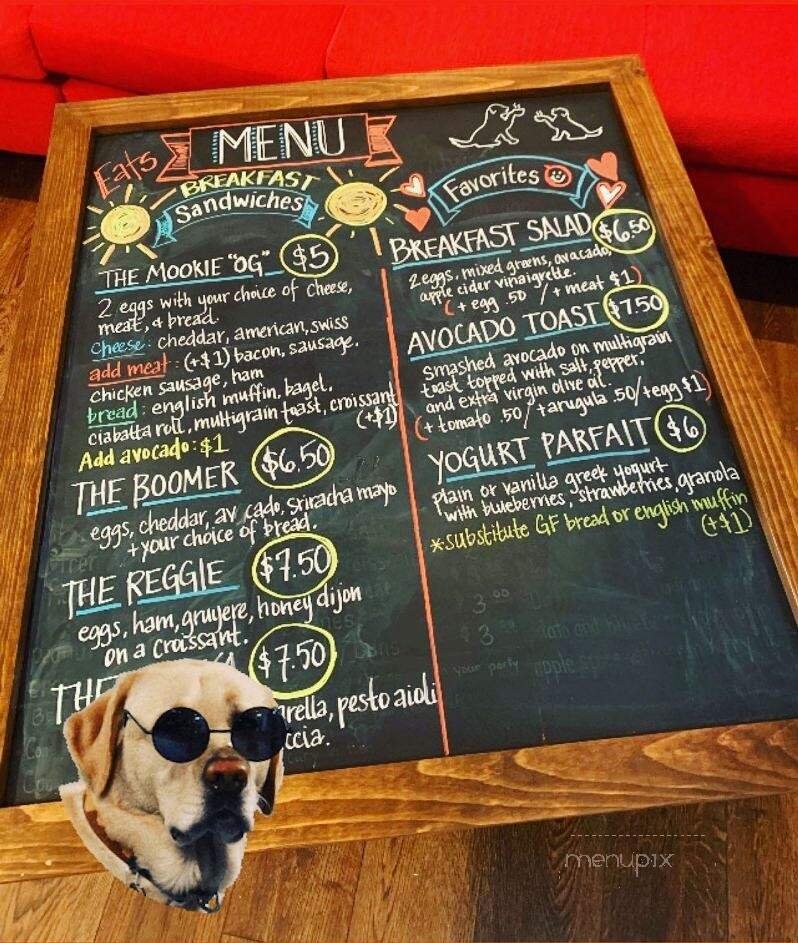 Eats
MENU
BREAKFAST
Sandwiches
THE MOOKIE "OG" $5
2 eggs with your choice of cheese,
meat, & bread.
Cheese: cheddar, american, swiss
add meat: (+$1) bacon, sausage,
chicken sausage, ham
bread: english muffin, bagel,
ciabatta roll, multigrain toast, croissant
(+$1)
Add avocado: $1
THE BOOMER $6.50
eggs, cheddar, av cado, sriracha mayo
+ your choice of bread.
THE REGGIE $7.50
eggs, ham, gruyere, honey dijon
on a croissant.
$7.50
pesto aioli
Favorites
BREAKFAST SALAD $6.50
2 eggs, mixed greens, avacado,
apple cider vinaigrette.
(+ egg .50 / + meat $1)
AVOCADO TOAST $7.50
smashed avocado on multigrain
toast topped with salt, pepper,
and extra virgin olive oil.
(+ tomato .50/+arugula .50/+egg $1)
YOGURT PARFAIT $6
plain or vanilla greek yogurt
with blueberries, strawberries, granola
*substitute GF bread or english muffin
(+$1)
menupix